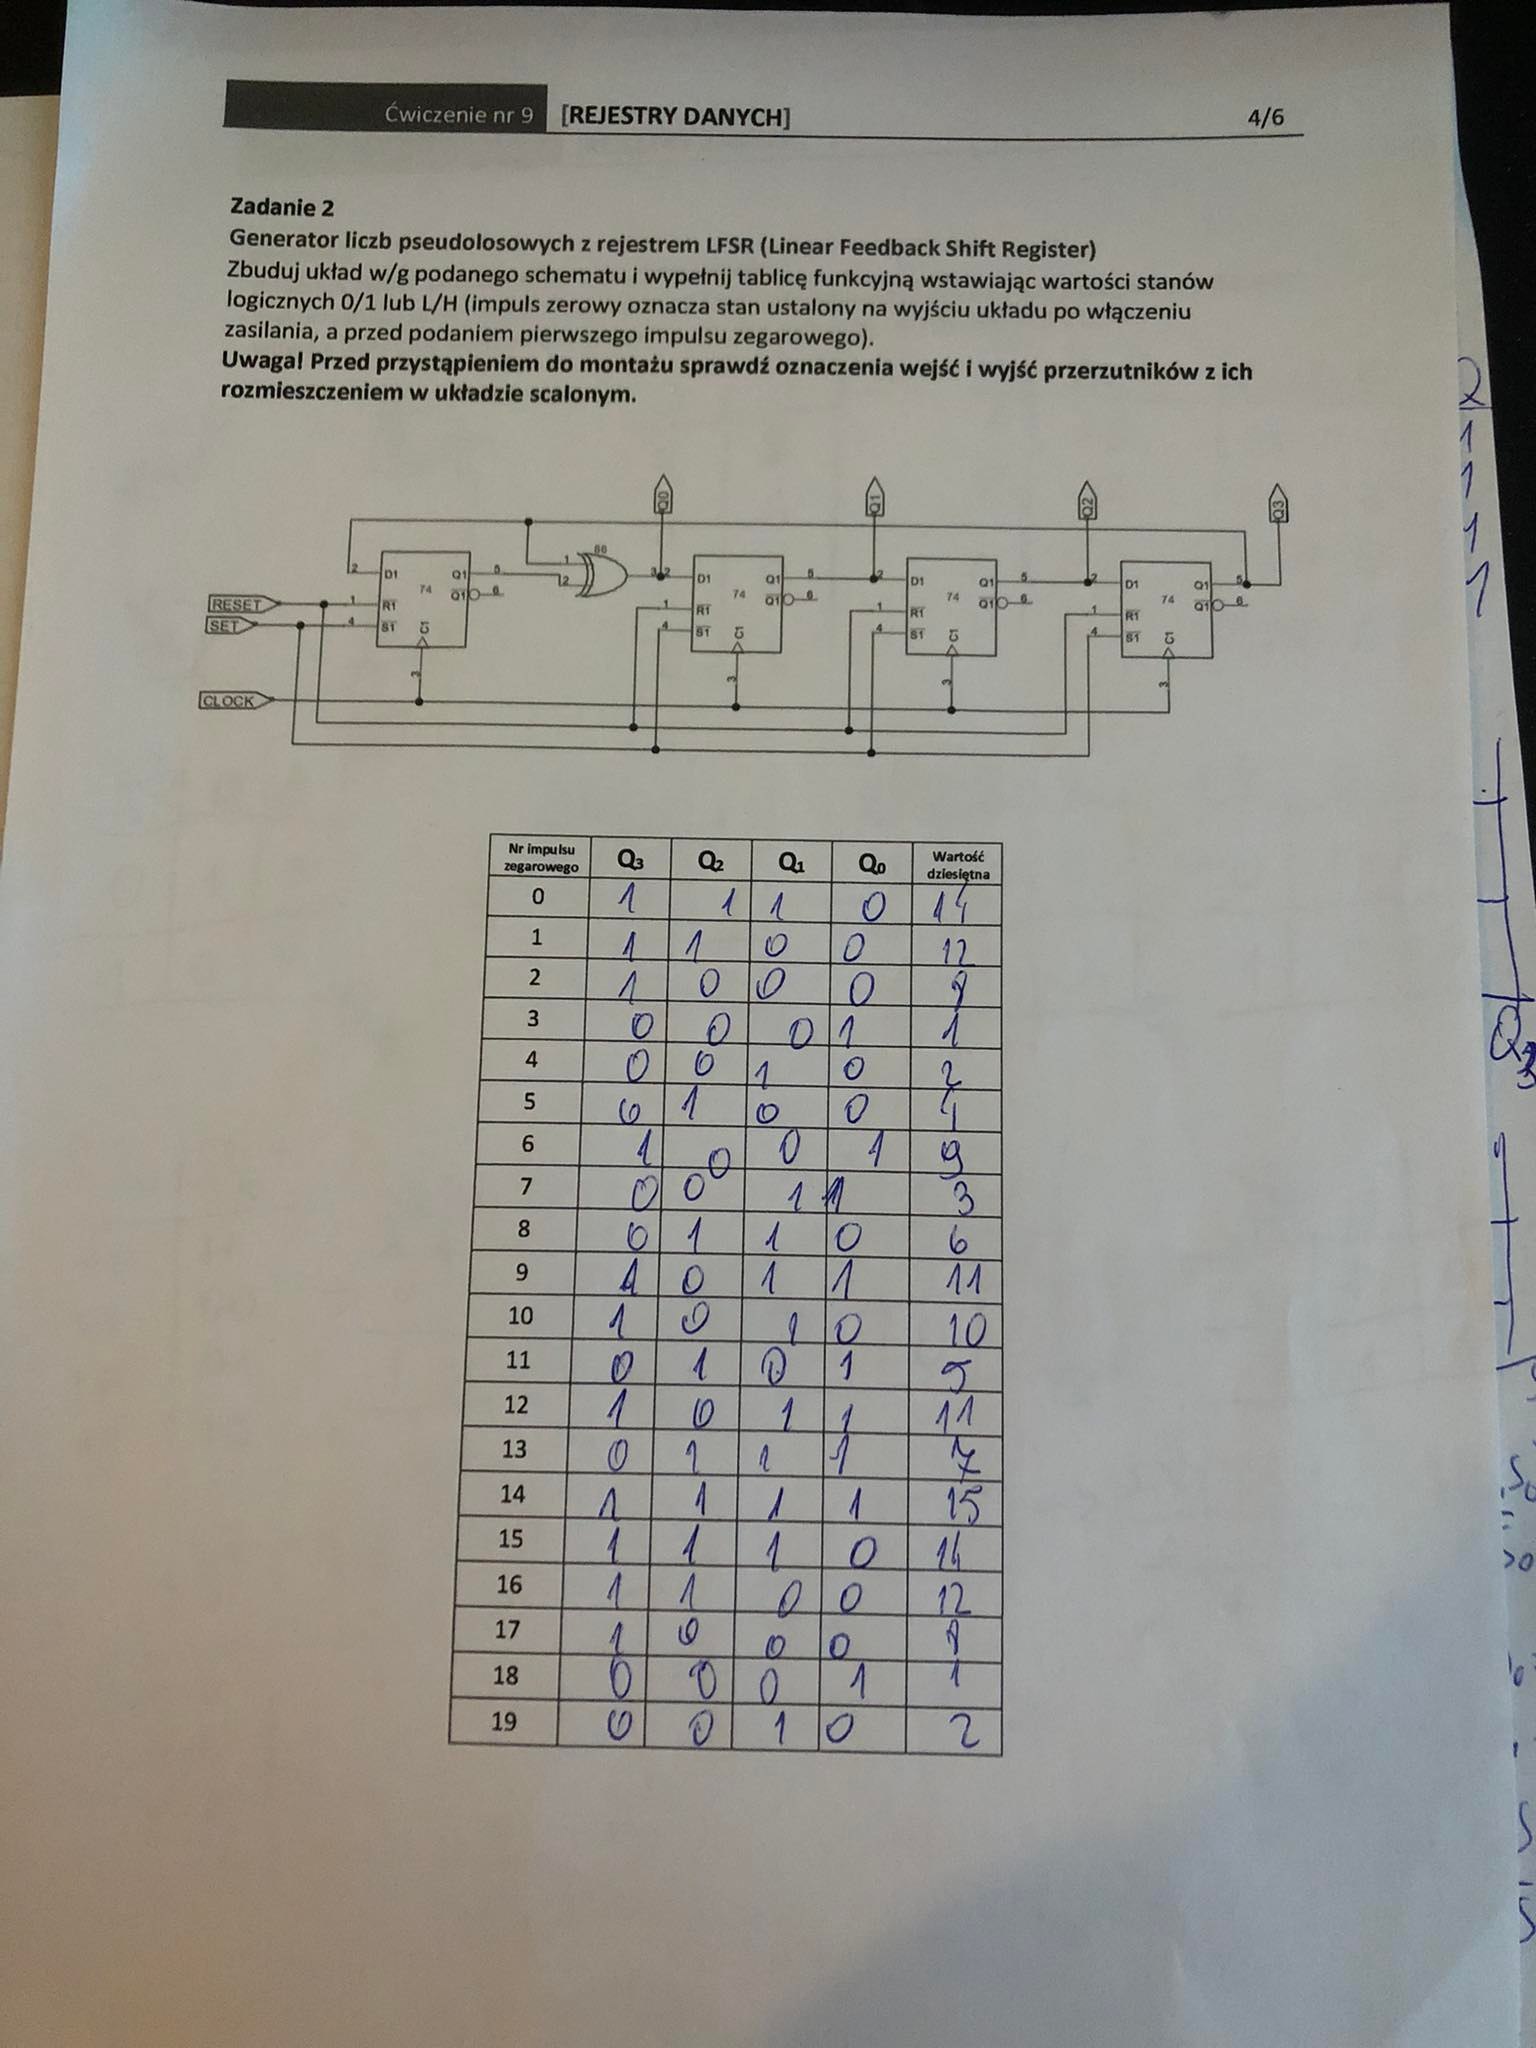 Ćwiczenie nr 9 [REJESTRY DANYCH] 4/6
Zadanie 2
Generator liczb pseudolosowych z rejestrem LFSR (Linear Feedback Shift Register)
Zbuduj układ w/g podanego schematu i wypełnij tablicę funkcyjną wstawiając wartości stanów
logicznych 0/1 lub L/H (impuls zerowy oznacza stan ustalony na wyjściu układu po włączeniu
zasilania, a przed podaniem pierwszego impulsu zegarowego).
Uwaga! Przed przystąpieniem do montażu sprawdź oznaczenia wejść i wyjść przerzutników z ich
rozmieszczeniem w układzie scalonym.
Q0 Q1 Q2 Q3
86
2 D1 Q1 5 1 2 3 2 D1 Q1 5 2 D1 Q1 5 2 D1 Q1 5
74 Q1 6 74 Q1 6 74 Q1 6 74 Q1 6
RESET 1 R1 1 R1 1 R1 1 R1
SET 4 S1 C1 4 S1 C1 4 S1 C1 4 S1 C1
3 3 3 3
CLOCK
Nr impulsu zegarowego Q3 Q2 Q1 Q0 Wartość dziesiętna
0 1 1 1 0 14
1 1 1 0 0 12
2 1 0 0 0 8
3 0 0 0 1 1
4 0 0 1 0 2
5 0 1 0 0 4
6 1 0 0 1 9
7 0 0 1 1 3
8 0 1 1 0 6
9 1 0 1 1 11
10 1 0 1 0 10
11 0 1 0 1 5
12 1 0 1 1 11
13 0 1 1 1 7
14 1 1 1 1 15
15 1 1 1 0 14
16 1 1 0 0 12
17 1 0 0 0 8
18 0 0 0 1 1
19 0 0 1 0 2
Q
1
1
1
1